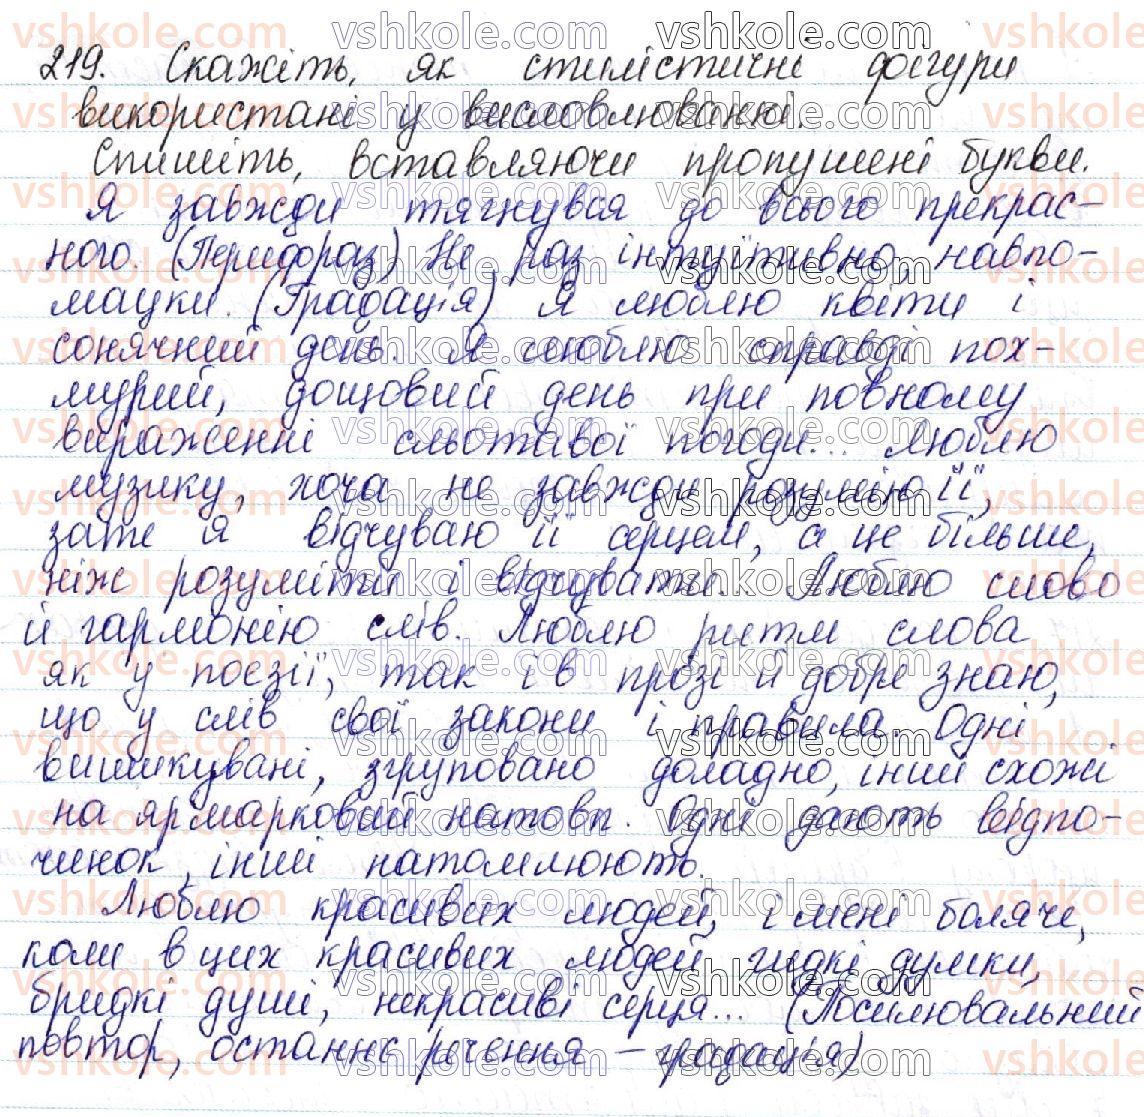 219. Скажіть, як стилістичні фігури
використані у висловлюванні.
Спишіть, вставляючи пропущені букви.
Я завжди тягнувся до всього прекрас-
ного. (Перифраз) Не раз інтуїтивно, навпо-
мацки. (Градація) Я люблю квіти і
сонячний день. Я люблю справді пох-
мурий, дощовий день при повному
вираженні сльотавої погоди... Люблю
музику, хоча не завжди розумію її,
зате я відчуваю її серцем, а це більше,
ніж розуміти і відчувати. Люблю слово
й гармонію слів. Люблю ритм слова
як у поезії, так і в прозі й добре знаю,
що у слів свої закони і правила. Одні
вишикувані, згруповано доладно, інші схожі
на ярмарковий натовп. Одні дають відпо-
чинок, інші натомлюють.
Люблю красивих людей, і мені боляче,
коли в цих красивих людей гидкі думки,
бридкі душі, некрасиві серця... (Посилювальний
повтор, останнє речення – градація)